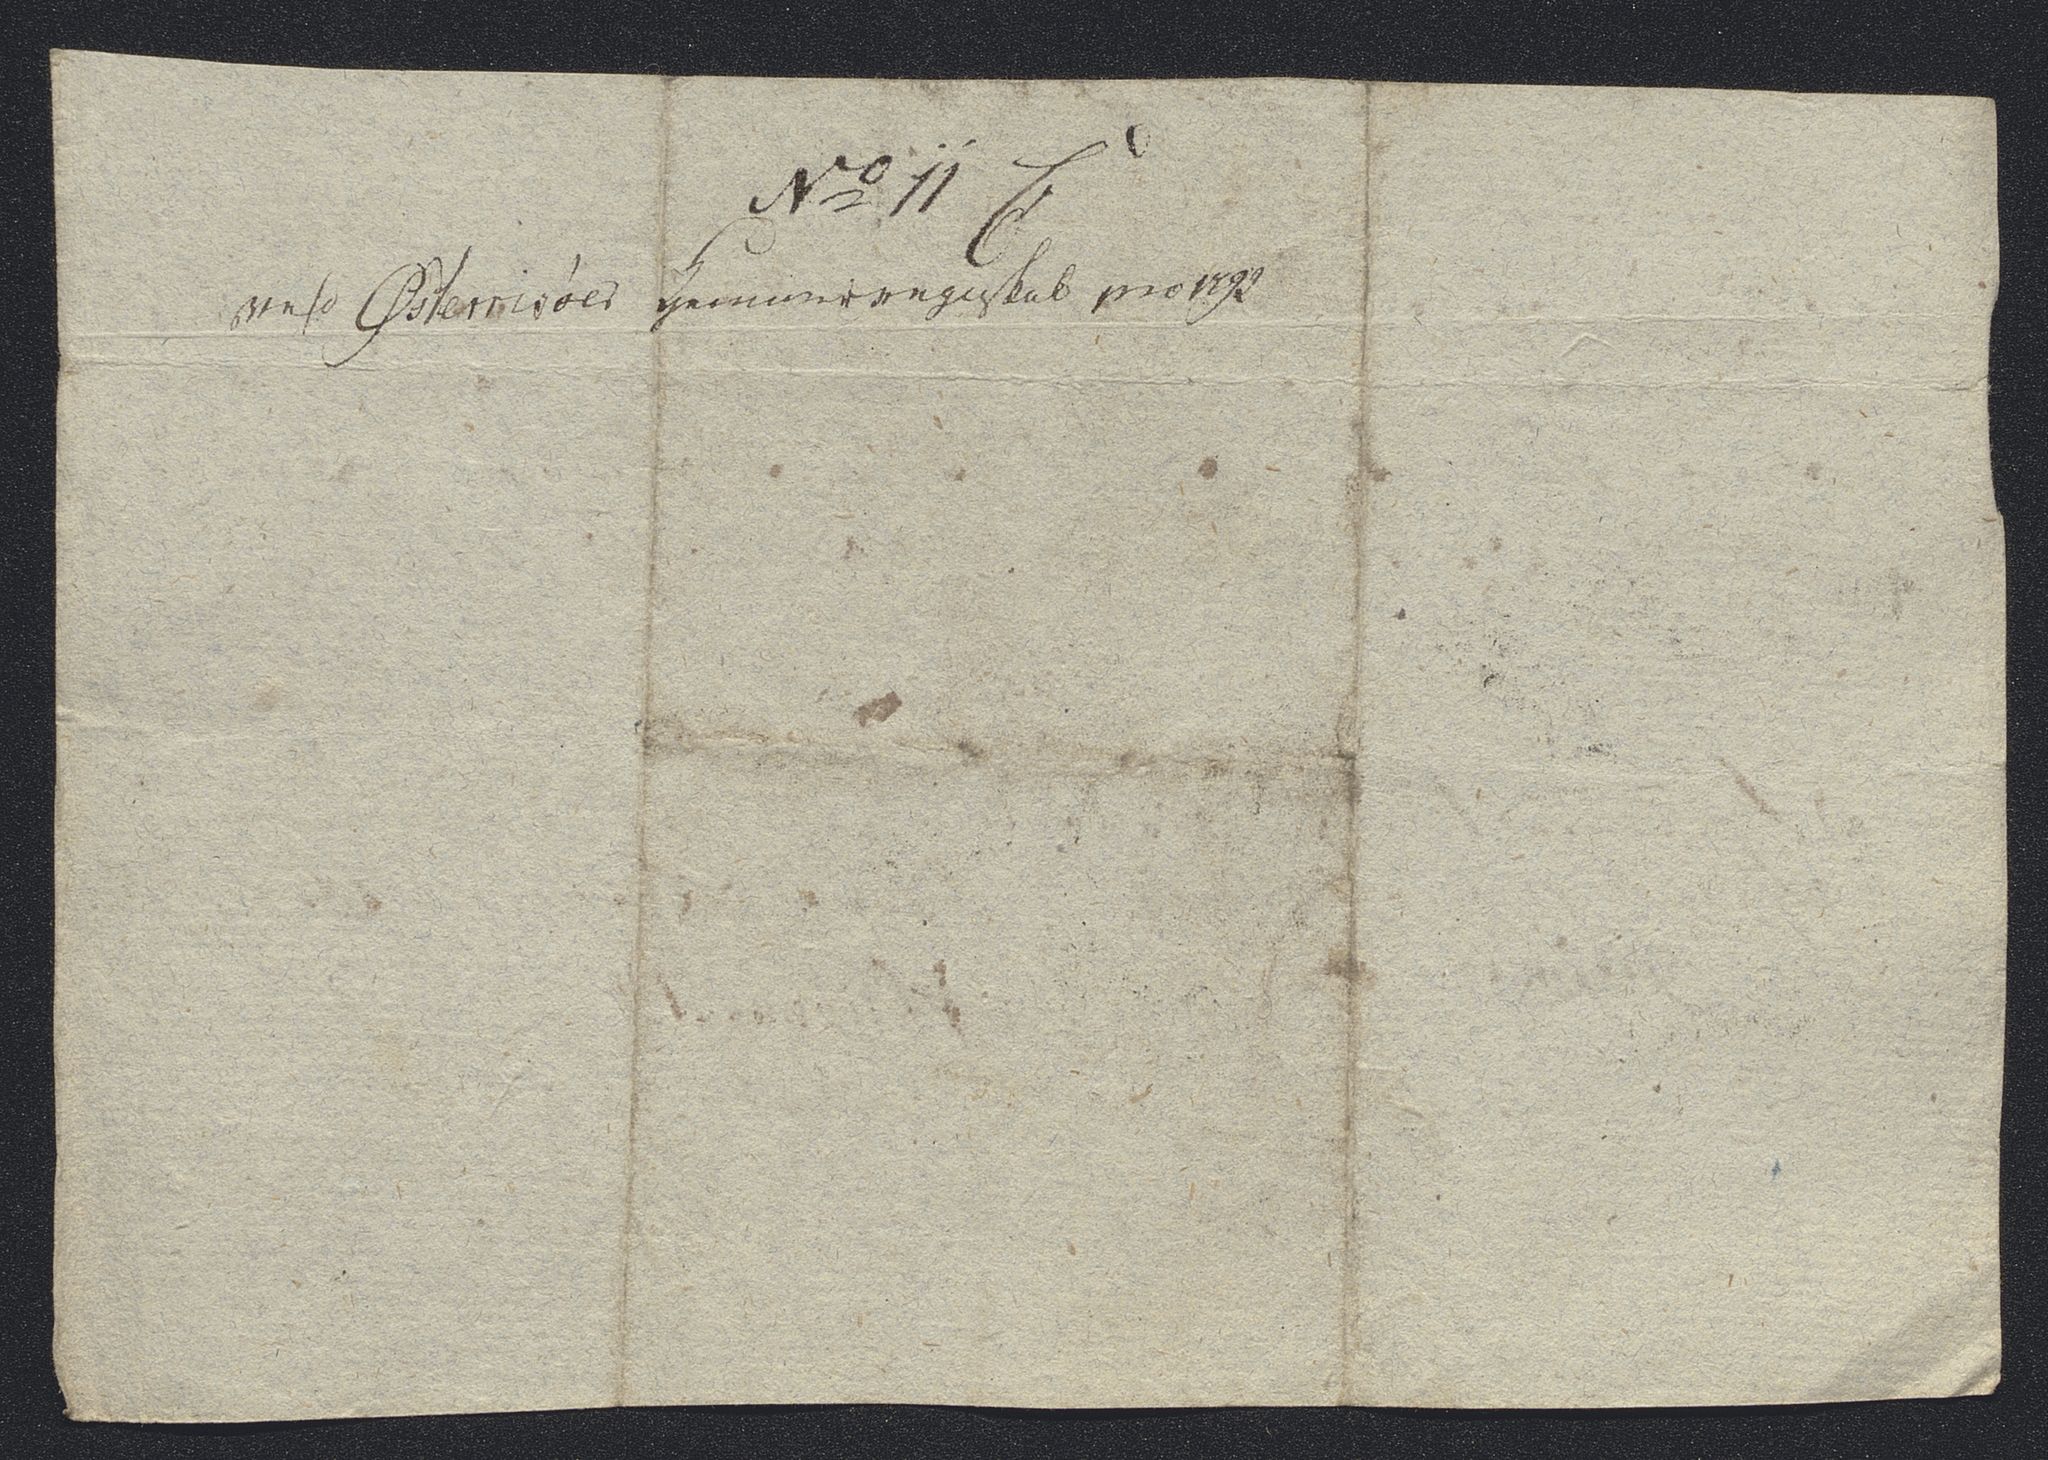 No 11 C
Østerrisöes Hammerregnskab pro 1792